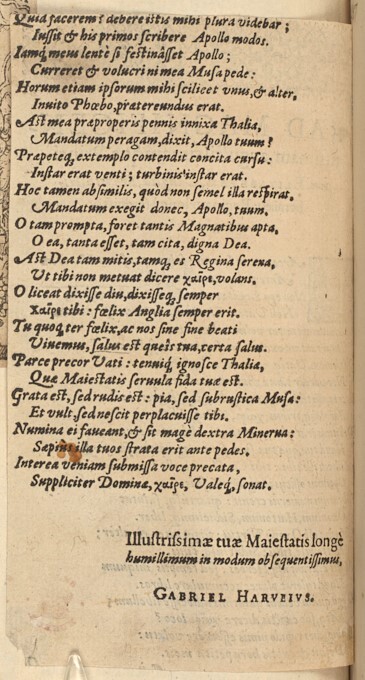 Quid facerem? debere istis mihi plura videbar;
Iussit & his primos scribere Apollo modos.
Iamq́; meus lentè si festinâsset Apollo;
Curreret & volucri ni mea Musa pede:
Horum etiam ipsorum mihi scilicet vnus, & alter,
Inuito Phœbo, prætereundus erat.
Ast mea præproperis pennis innixa Thalia,
Mandatum peragam, dixit, Apollo tuum?
Præpeteq́; extemplo contendit concita cursu:
Instar erat venti; turbinis instar erat.
Hoc tamen absimilis, quòd non semel illa respirat,
Mandatum exegit donec, Apollo, tuum.
O tam prompta, foret tantis Magnatibus apta,
O ea, tanta esset, tam cita, digna Dea.
Ast Dea tam mitis, tamq́; es Regina serena,
Ut tibi non metuat dicere χαῖρε, volans.
O liceat dixisse diu, dixisseq́; semper
Χαῖρε tibi: fœlix Anglia semper erit.
Tu quoq; ter fœlix, ac nos sine fine beati
Viuemus, salus est queîs tua, certa salus.
Parce precor Vati: tenuiq́; ignosce Thalia,
Quæ Maiestatis seruula fida tuæ est.
Grata est, sed rudis est: pia, sed subrustica Musa:
Et vult, sed nescit perplacuisse tibi.
Numina ei faueant, & sit magè dextra Minerua:
Sæpius illa tuos strata erit ante pedes.
Interea veniam submissa voce precata,
Suppliciter Dominæ, χαῖρε, Valeq́; sonat.
Illustrissimæ tuæ Maiestatis longè
humillimum in modum obsequentissimus,
GABRIEL HARVEIVS.